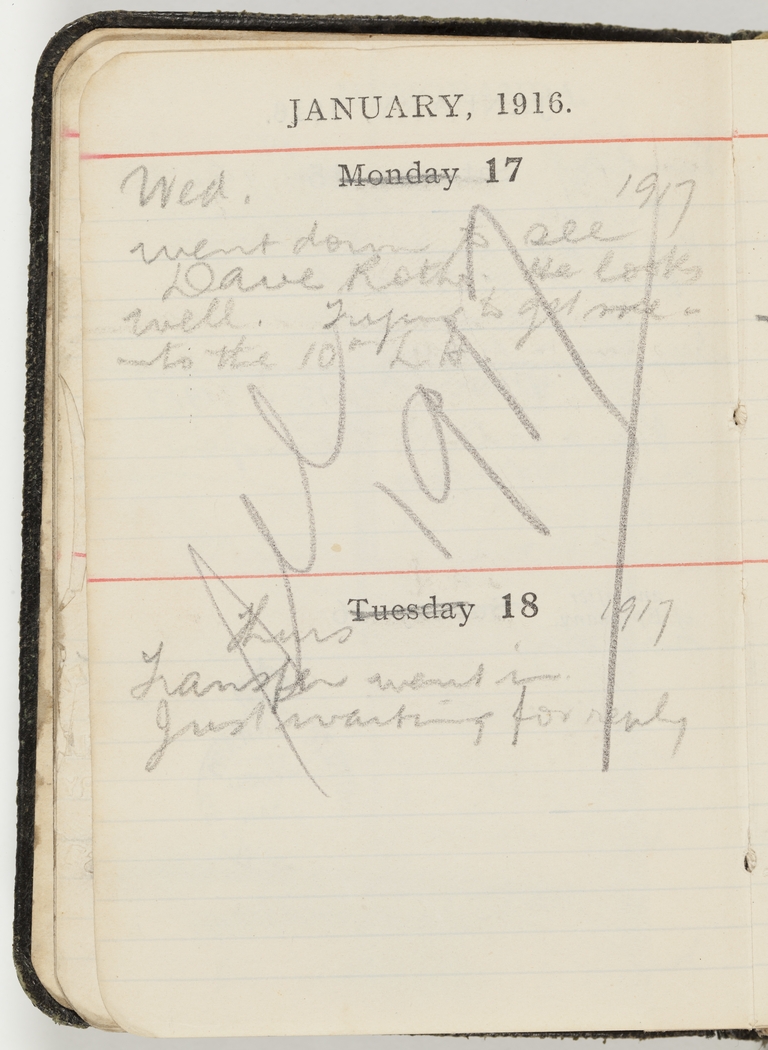 JANUARY, 1916.
Monday 17
Wed. 1917
went down to see
Dave Roth. He looks
well. Trying to get me
into the 10th L.H.
All 1917
Tuesday 18
Thurs 1917
Transfer went in.
Just waiting for reply